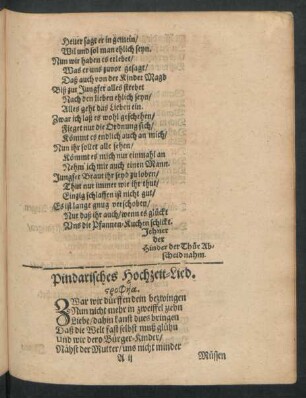 Heuer sagt er in gemein/
Wil und sol man ehlich seyn.
Nun wir haben es erlebet/
Was er uns zuvor gesagt/
Daß auch von der Kinder Magd
Biß zur Jungfer alles strebet
Nach den lieben ehlich seyn/
Alles geht das Lieben ein.
Zwar ich laß es wohl geschehen/
Fieget nur die Ordnung sich/
Kömmt es endlich auch an mich/
Nun ihr sollet alle sehen/
Kömmt es mich nur einmahl an
Nehm' ich mir auch einen Mann.
Jungfer Braut ihr seyd zu loben/
Thut nur immer wie ihr thut/
Einzig schlaffen ist nicht gut/
Es ist lange gnug verschoben/
Nur daß ihr auch/wenn es glückt
Uns die Pfannen-Kuchen schickt.
Jehner
der
Hinder der Thür Ab-
scheid nahm.
Pindarisches Hochzeit-Lied.
ςροφὴα.
ZWar wir dürffen dein bezwingen
Nun nicht mehr in zweiffel zihn
Liebe/dahin kanst du es bringen
Daß die Welt fast selbst muß glühn
Und wie dero Bürger-Kinder/
Nähst der Mutter/uns nicht minder
A ij
Müssen